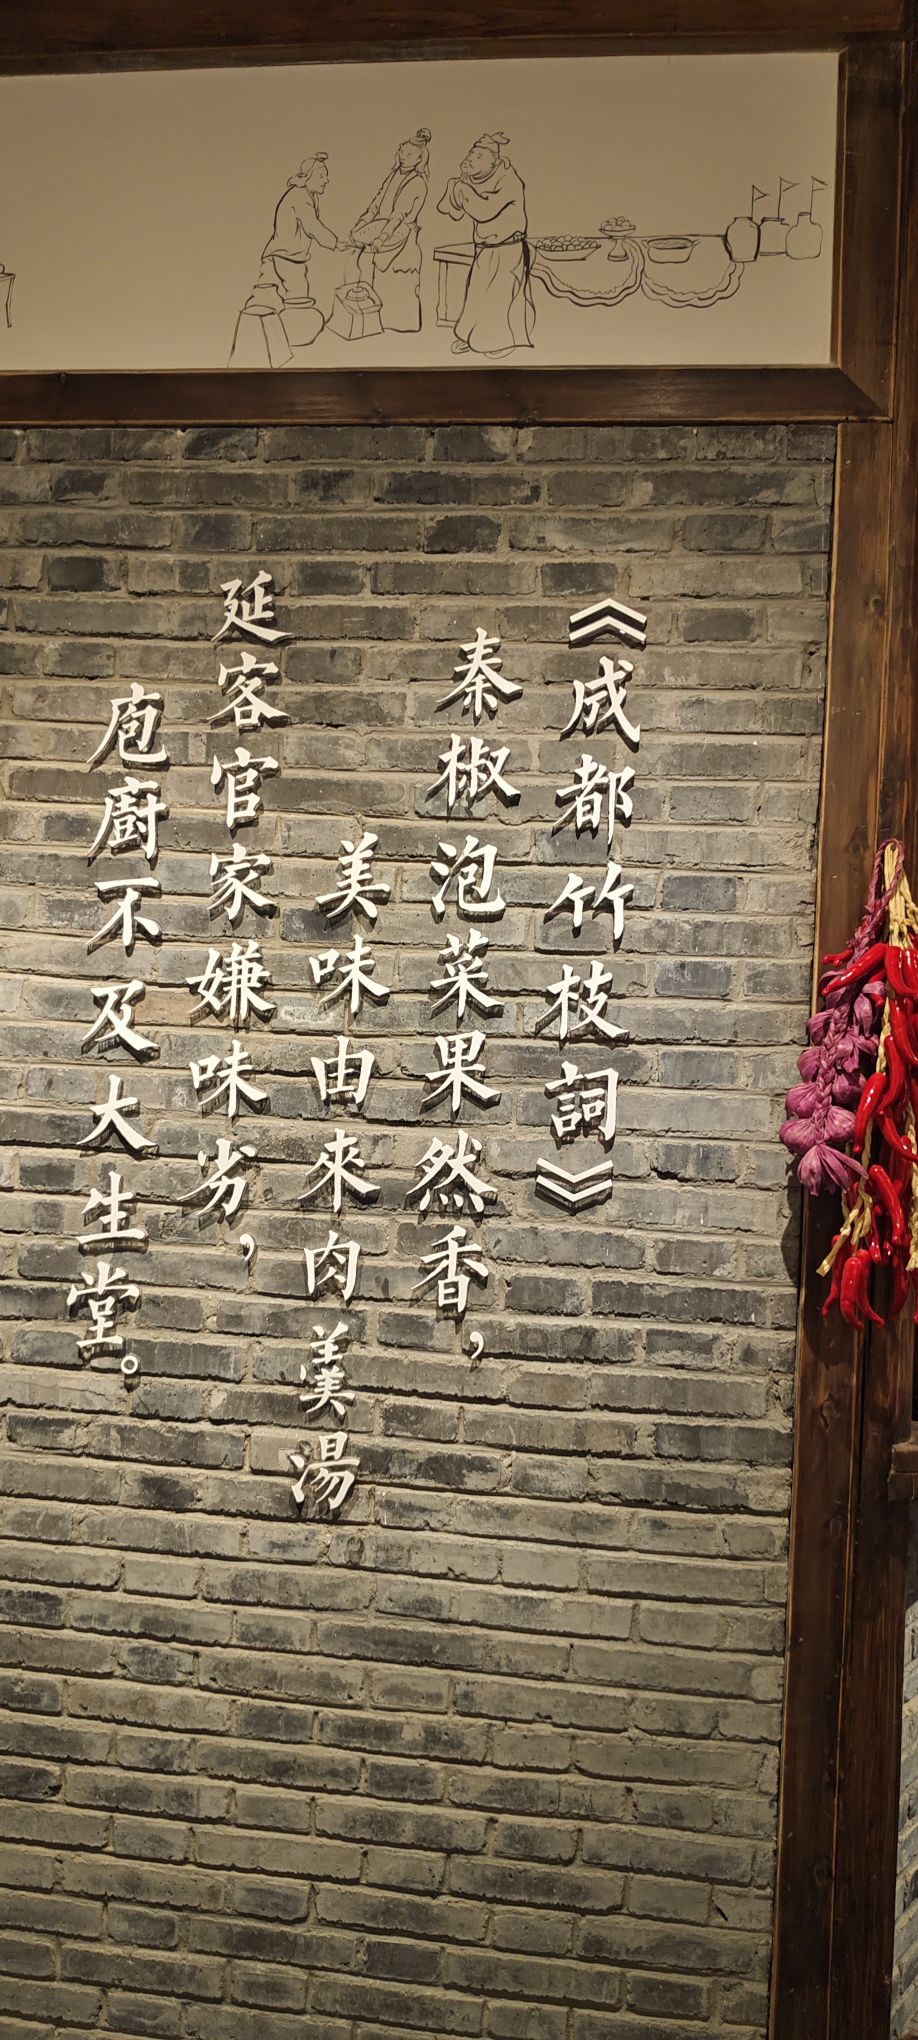 《成都竹枝詞》
秦椒泡菜果然香，
美味由來肉羹湯
延客官家嫌味劣，
庖廚不及大生堂。